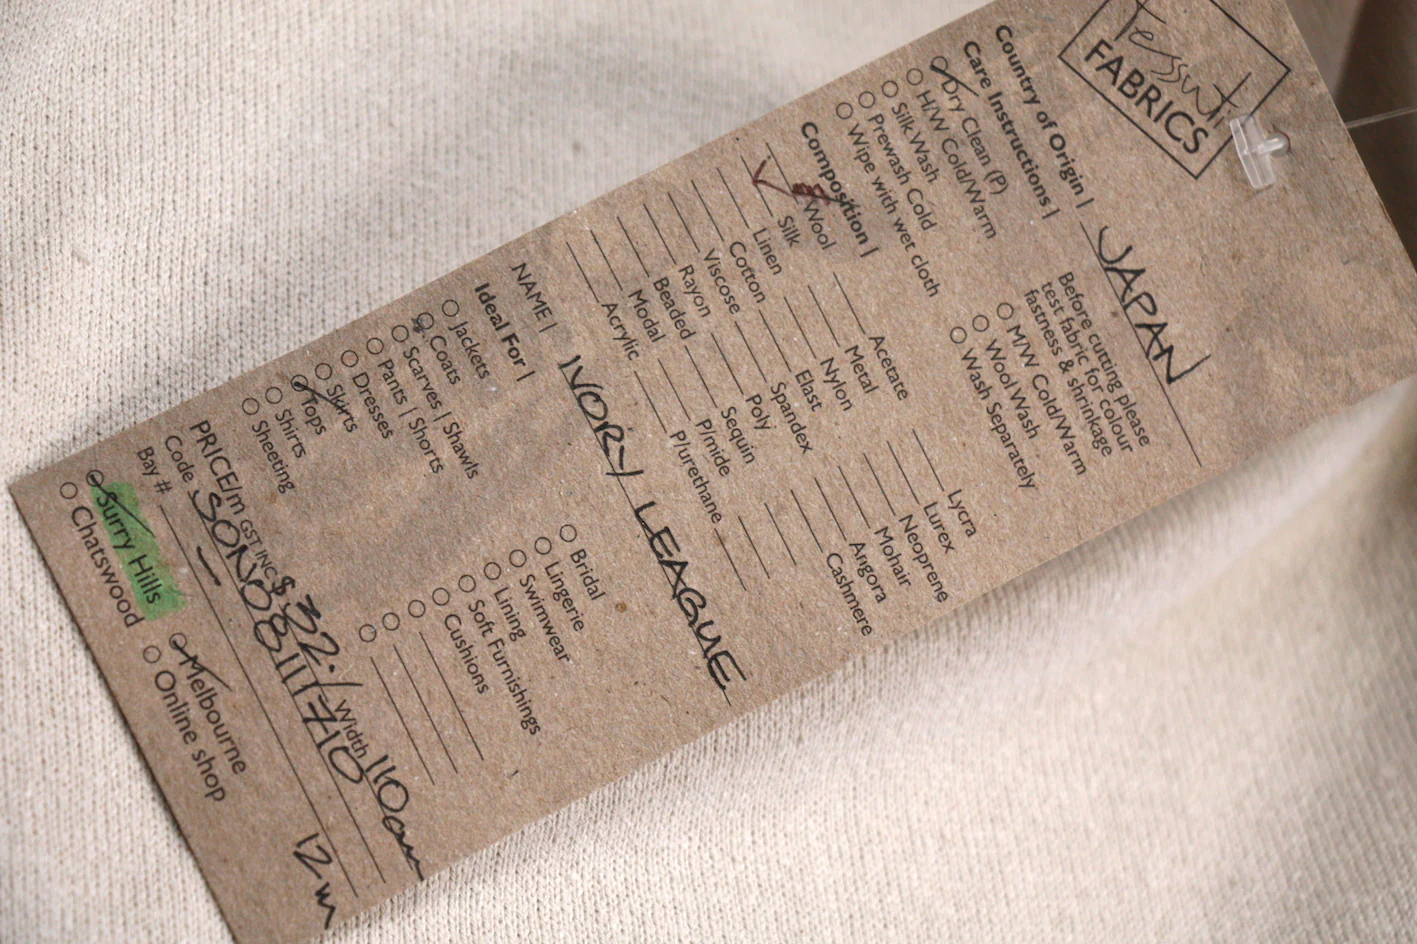 Tessuti
FABRICS
Country of Origin | JAPAN
Care Instructions |
Dry Clean (P)
H/W Cold/Warm
Silk Wash
Prewash Cold
Wipe with wet cloth
Before cutting please
test fabric for colour
fastness & shrinkage
M/W Cold/Warm
Wool Wash
Wash Separately
Composition |
Wool
Silk
Linen
Cotton
Viscose
Rayon
Beaded
Modal
Acrylic
Acetate
Metal
Nylon
Elast
Spandex
Poly
Sequin
P/mide
P/urethane
Lycra
Lurex
Neoprene
Mohair
Angora
Cashmere
NAME | IVORY LEAGUE
Ideal For |
Jackets
Coats
Scarves | Shawls
Pants | Shorts
Dresses
Skirts
Tops
Shirts
Sheeting
Bridal
Lingerie
Swimwear
Lining
Soft Furnishings
Cushions
PRICE/m GST INC $32.- / Width 110cm
Code SON08111710
Bay # 12m
Surry Hills
Chatswood
Melbourne
Online shop